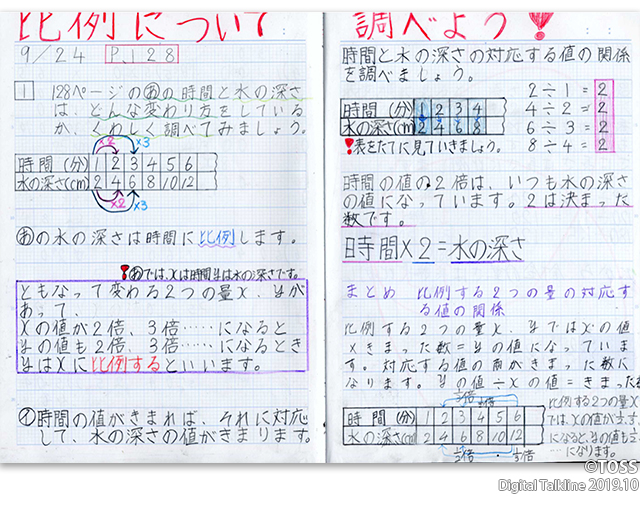 比例について
9/24 P.128
1 128ページのあの時間と水の深さ
は、どんな変わり方をしている
か、くわしく調べてみましょう。
×2 ×3
時間(分) 1 2 3 4 5 6
水の深さ(cm) 2 4 6 8 10 12
×2 ×3
あの水の深さは時間に比例します。
!あでは、xは時間yは水の深さです。
ともなって変わる2つの量x、yが
あって、
xの値が2倍、3倍……になると
yの値も2倍、3倍……になるとき
yはxに比例するといいます。
イ時間の値がきまれば、それに対応
して、水の深さの値がきまります。
調べよう!
時間と水の深さの対応する値の関係
を調べましょう。
時間(分) 1 2 3 4
水の深さ(cm) 2 4 6 8
!表をたてに見ていきましょう。
2÷1=2
4÷2=2
6÷3=2
8÷4=2
時間の値の2倍は、いつも水の深さ
の値になっています。2は決まった
数です。
時間×2=水の深さ
まとめ 比例する2つの量の対応す
る値の関係
比例する2つの量x、yではxの値
×きまった数=yの値になっていま
す。対応する値の商がきまった数に
なります。yの値÷xの値=きまった数
時間(分) 1 2 3 4 5 6
水の深さ(cm) 2 4 6 8 10 12
比例する2つの量x
では、xの値が
になると、yの値も
……になります。
©TOSS
Digital Talkline 2019.10